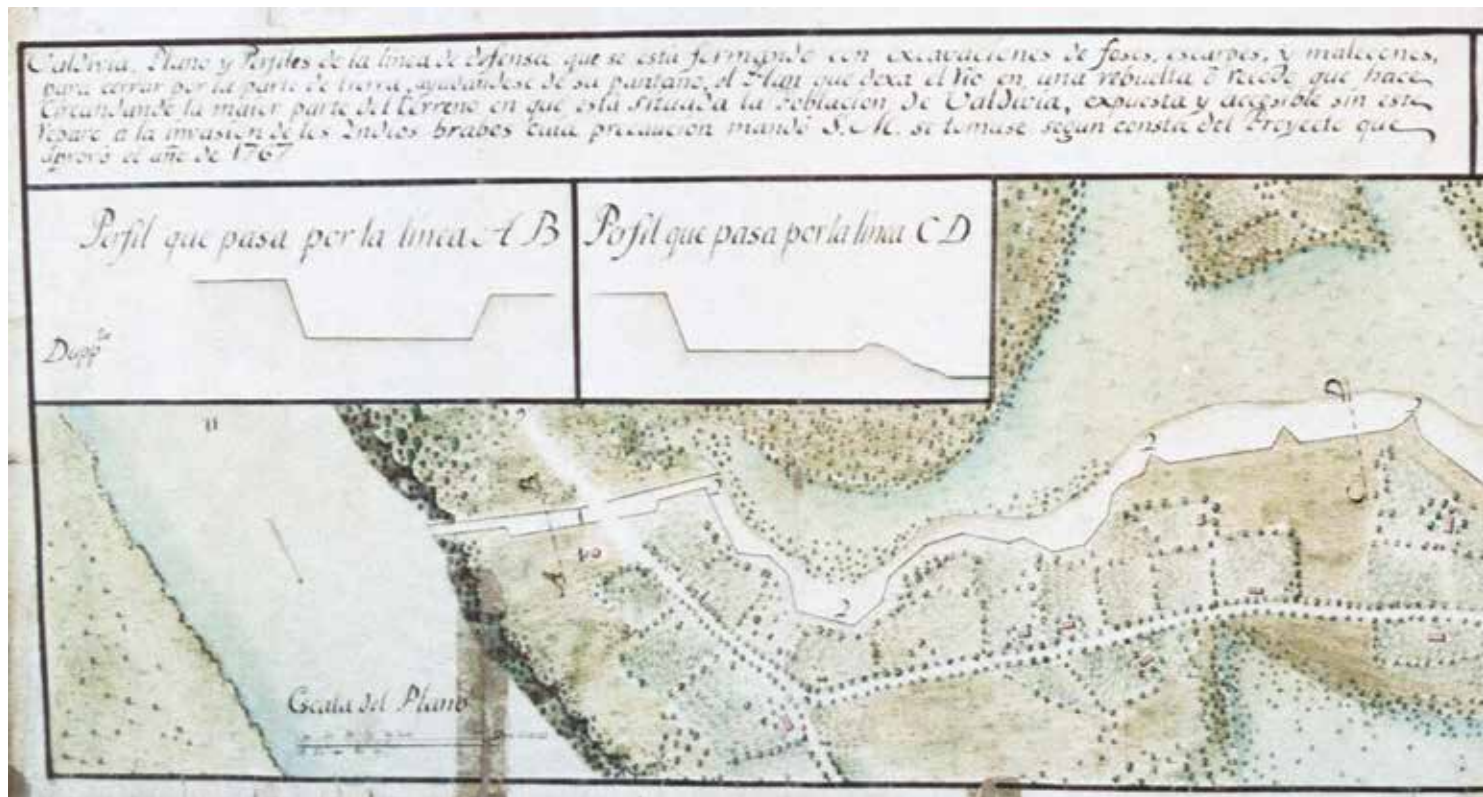 Valdivia. Plano y Perfiles de la linea de defensa que se está formando con excavaciones de fosos, escarpes, y malecones,
para cerrar por la parte de tierra, ayudandose de su pantano, el Plan que dexa el rio en una rebuelta ò recodo que hace
Circundando la maior parte del terreno en que está situada la Poblacion de Valdivia, expuesta y accesible sin este
reparo a la invasion de los Indios brabos cuia precaucion mandó S.M. se tomase segun consta del Proyecto que
aprovó el año de 1767
Perfil que pasa por la linea A B
Perfil que pasa por la linea C D
Dupp.do
D
2
2
C
B
1
A
2
Escala del Plano